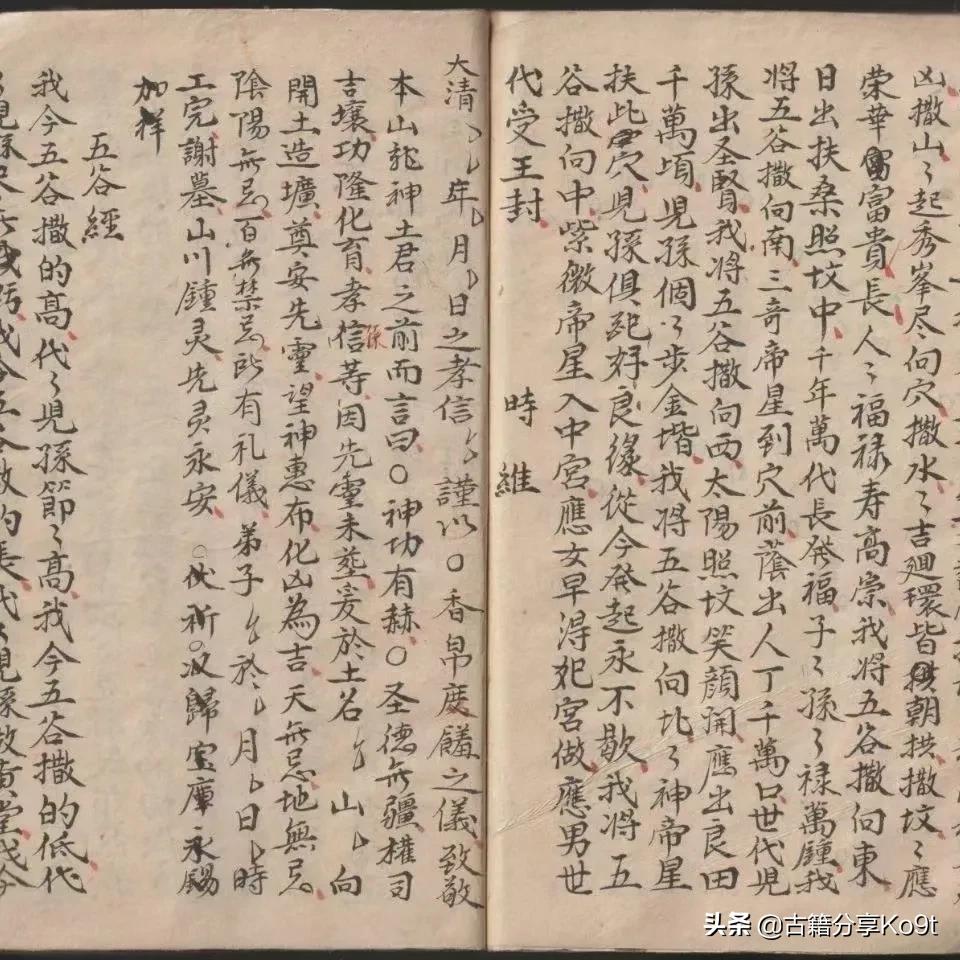 凶撒山〻起秀峯尽向穴撒水〻吉廻環皆朝拱撒坟〻應
荣華富貴長人〻福禄寿高崇我將五谷撒向東
日出扶桑照坟中千年萬代長発福子〻孫〻禄萬鍾我
将五谷撒向南三奇帝星到穴前蔭出人丁千萬口世代児
孫出圣賢我將五谷撒向西太陽照坟笑顔開應出良田
千萬頃児孫個〻步金堦我将五谷撒向北〻神帝星
扶此穴児孫俱配好良缘從今発起永不歇我將五
谷撒向中紫微帝星入中宮應女早得妃宮做應男世
代受王封
時維
大清〻〻年〻月〻日之孝信〻謹以○香帛度饈之儀致敬
本山龍神土君之前而言曰○神功有赫○圣德無疆權司
吉壤功隆化育孝信孫等因先靈未塟爰於土名〻山〻向
開土造壙奠安先靈望神惠布化凶為吉天無忌地無忌
陰陽無忌百無禁忌所有礼儀弟子〻於〻月〻日〻時
工完謝墓山川鍾灵先灵永安○伏祈○收歸宝庫永錫
加祥
五谷經
我今五谷撒的髙代〻児孫節〻髙我今五谷撒的低代